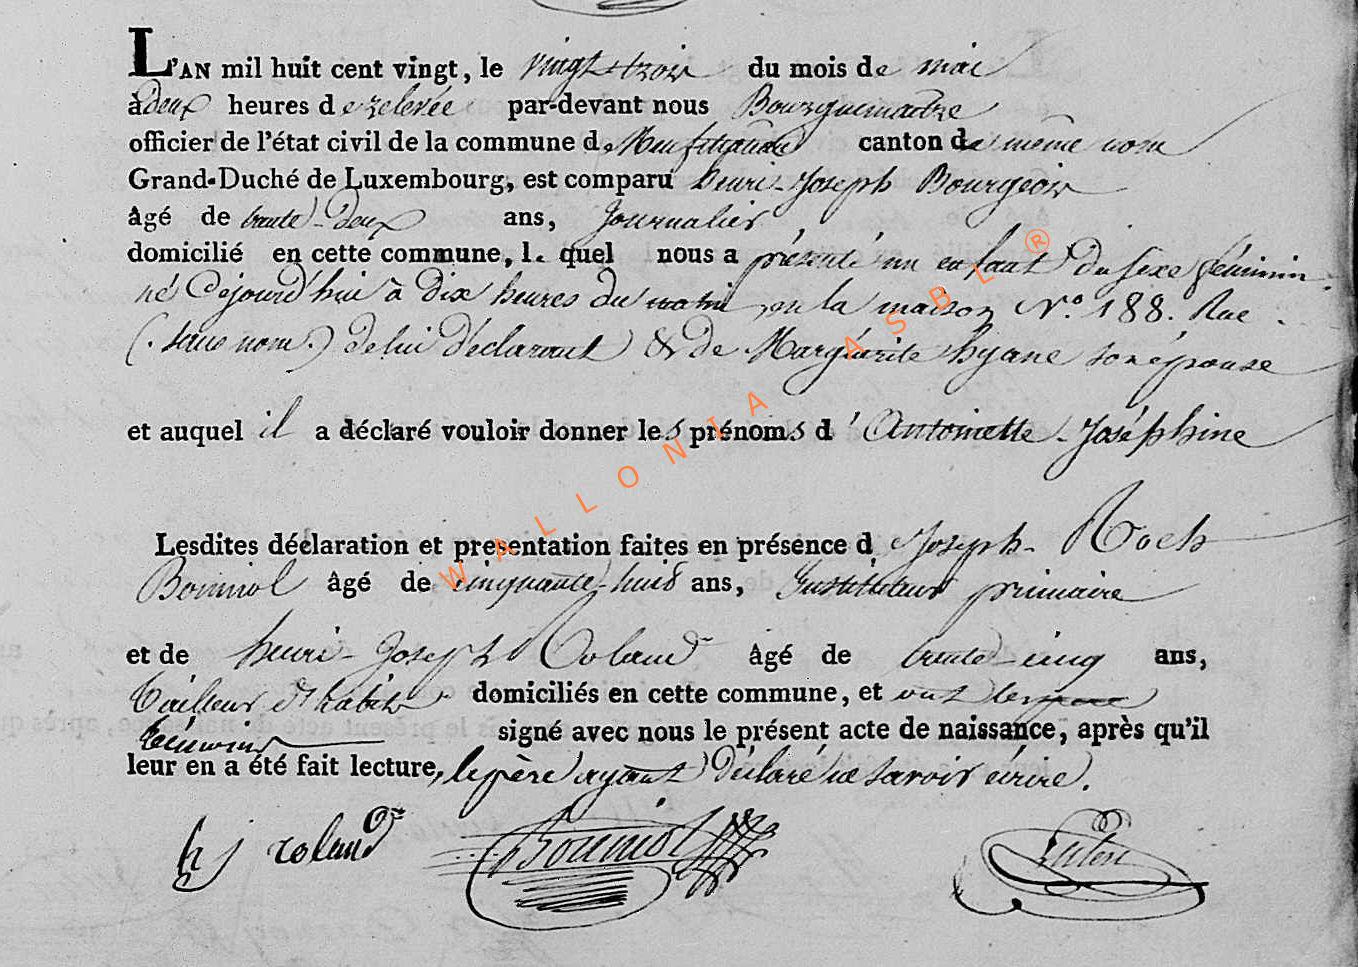 L'AN mil huit cent vingt, le vingt-trois du mois de mai
à deux heures de relevée par-devant nous Bourguemaître
officier de l'état civil de la commune de Neufchateau canton de même nom
Grand-Duché de Luxembourg, est comparu henri-Joseph Bourgeois
âgé de trente-deux ans, Journalier
domicilié en cette commune, le quel nous a présenté un enfant du sexe féminin
né Cejourd'hui à dix heures du matin, en la maison N.º 188. Rue
(. sans nom.) de lui déclarant & de Marguérite hyane son épouse
et auquel il a déclaré vouloir donner les prénoms d'Antoinette-Joséphine
Lesdites déclaration et presentation faites en présence de Joseph-Roch
Bonniol âgé de cinquante-huit ans, Instituteur primaire
et de henri-Joseph Roland âgé de trente-cinq ans,
Tailleur d'habits domiciliés en cette commune, et ont les
témoins signé avec nous le présent acte de naissance, après qu'il
leur en a été fait lecture, le père ayant déclaré ne savoir écrire.
h j roland Bonniol
WALLONIA ASBL ®